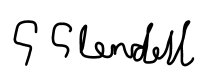 G Glendell